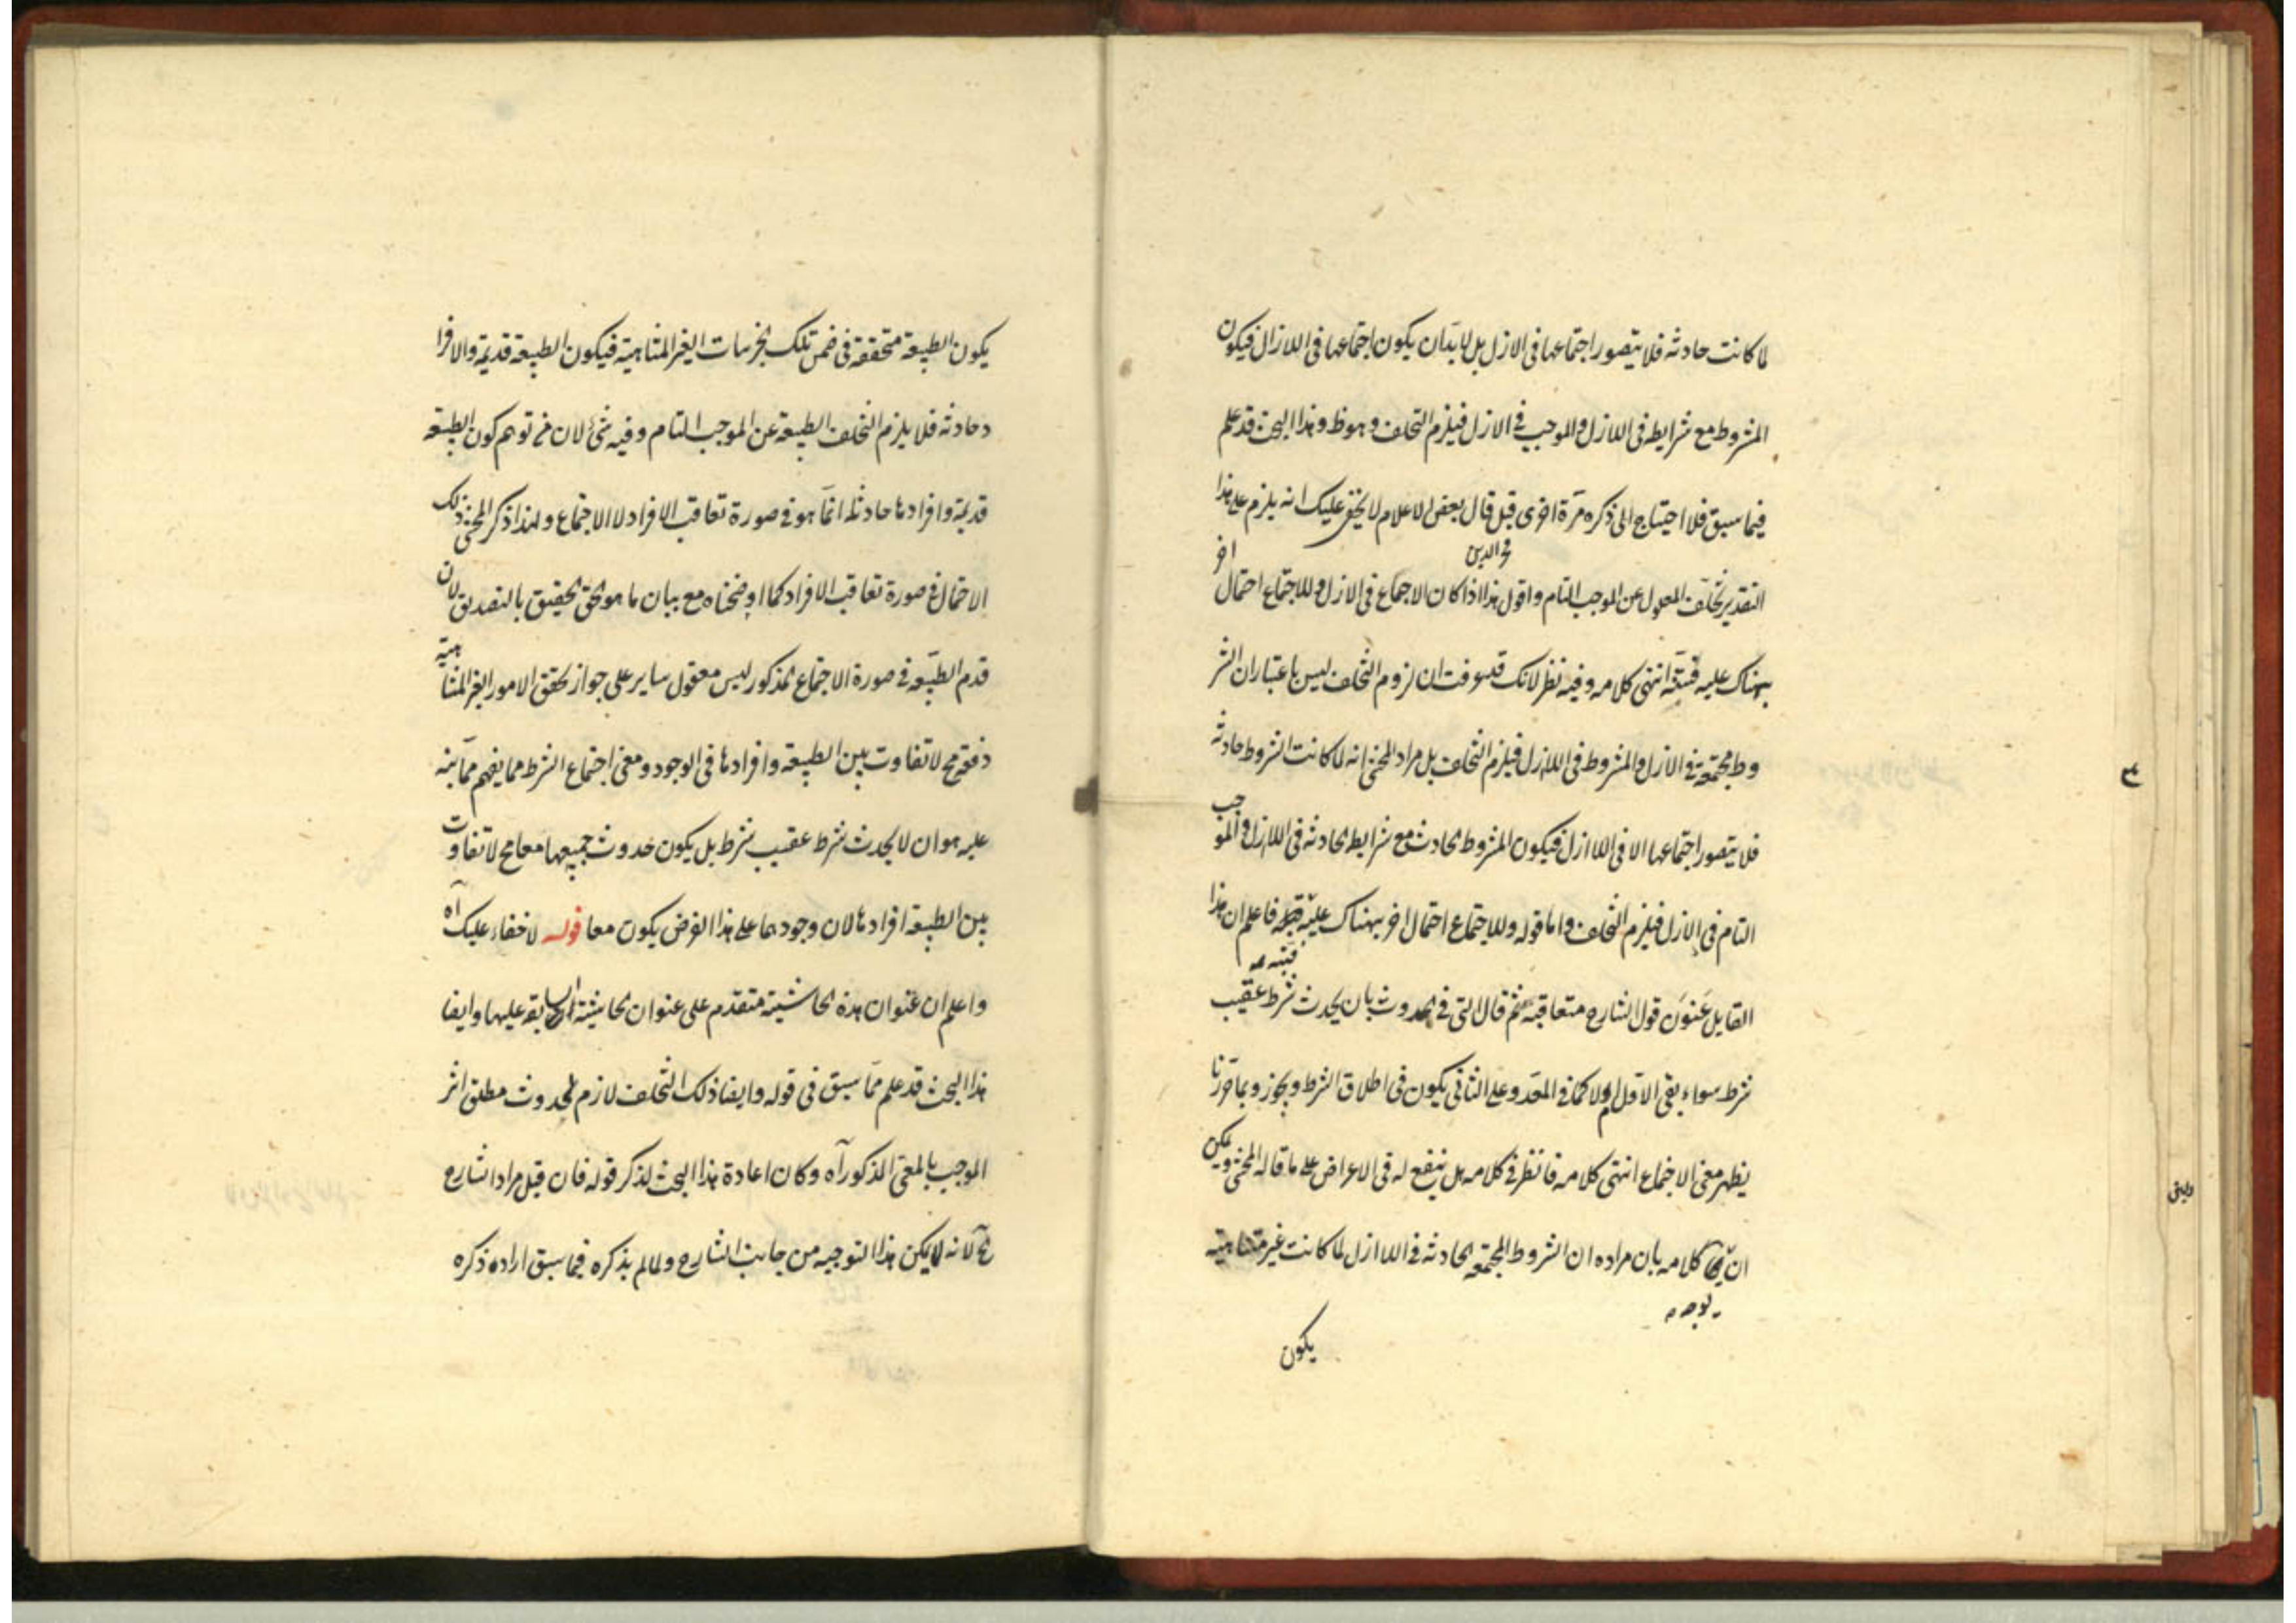 لما كانت حادثه فلا يتصور اجتماعها فى الازل بل لا بدان يكون اجتماعها فى اللازال فيكون
المشروط مع شرايطه فى اللازل والموجب فى الازل فيلزم التخلف وهوظ وهذا البحث قد علم
فيما سبق فلا احتياج الى ذكره مرّة اخرى قيل قال بعض الاعلام لا يخفى عليك انه يلزم على هذا
فخر الدين
التقدير تخلّف المعلول عن الموجب التام واقول هذا اذا كان الاجتماع فى الازل وللاجتماع احتمال اخر
يهناك عليه فتنبّه انتهى كلامه وفيه نظر لانك قد عرفت ان لزوم التخلف ليس باعتبار ان الشر
وط مجتمعة فى الازل والمشروط فى اللازل فيلزم التخلف بل مراد المحشى انه لما كانت الشروط حادثه
فلا يتصور اجتماعها الا فى اللاازل فيكون المشروط الحادث مع شرايطه الحادثه فى اللازل والموجب
التام فى الازل فيلزم التخلف واما قوله وللاجتماع احتمال اخر يهناك عليه فاعلم ان هذا
فتنبه صه
القايل عَنوَن قول الشارح متعاقبة ثم قال التى فى الحدوث بان يحدث شرط عقيب
شرط سواء بقى الاول ام لا كما فى المعدّ وعلى الثانى يكون فى اطلاق الشرط وبجوز وبما حررنا
يظهر معنى الاجتماع انتهى كلامه فانظر فى كلامه هل ينفع له فى الاعراض على ما قاله المحشى ويمكن
ان كلامه بان مراده ان الشروط المجتمعه الحادثه فى اللاازل لما كانت غير متناهية
يوجه صه
يكون
يكون الطبيعة متحققة فى ضمن تلك الجزئيات الغير المتناهية فيكون الطبيعة قديمة والافرا
د حادثه فلا يلزم التخلف الطبيعة عن الموجب التام وفيه شئ لان من توهم كون الطبيعة
قديمة وافرادها حادثة انمّا هو فى صورة تعاقب الافراد لا الاجتماع ولهذا ذكر المحشى ذلك
الاحتمال فى صورة تعاقب الافراد كما اوضحناه مع بيان ما هو الحق الحقيق بالتصديق لان
قدم الطبيعة فى صورة الاجتماع المذكور ليس معقول سايرعلى جواز تحقق الامور الغير المتناهية
دفعة مح لا تفاوت بين الطبيعة وافرادها فى الوجود ومعنى اجتماع الشرط مما يفهم ممّا نبه
عليه هوان لا يحدث شرط عقيب شرط بل يكون حدوث جميعها معا مح لا تفاوت
بين الطبيعة افرادها لان وجودهما على هذا الفرض يكون معا قوله لا خفاء عليك آه
واعلم ان عنوان هذه الحاشية متقدم على عنوان الحاشية السابقة عليها وايضا
هذا البحث قد علم ممّا سبق فى قوله وايضا ذلك التخلف لازم لحدوث مطلق اثر
الموجب بالمعنى المذكور آه وكان اعادة هذا البحث لذكر قوله فان قيل مراد الشارح
آخ لانه لا يمكن هذا التوجيه من جانب الشارح ولما لم يذكره فيما سبق اراده ذكره